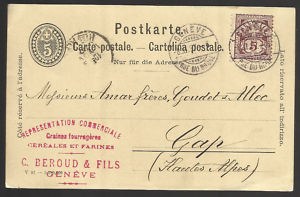 Postkarte.
Carte postale. Cartolina postale.
Nur für die Adresse.
Côté réservé à l'adresse.
Lato riservato all'indirizzo.
5
GENÈVE
RUE DU
5
Messieurs Amar frères, Goudet &
Gap
(Hautes Alpes)
REPRÉSENTATION COMMERCIALE
Graines fourragères
CÉRÉALES ET FARINES
C. BEROUD & FILS
GENÈVE